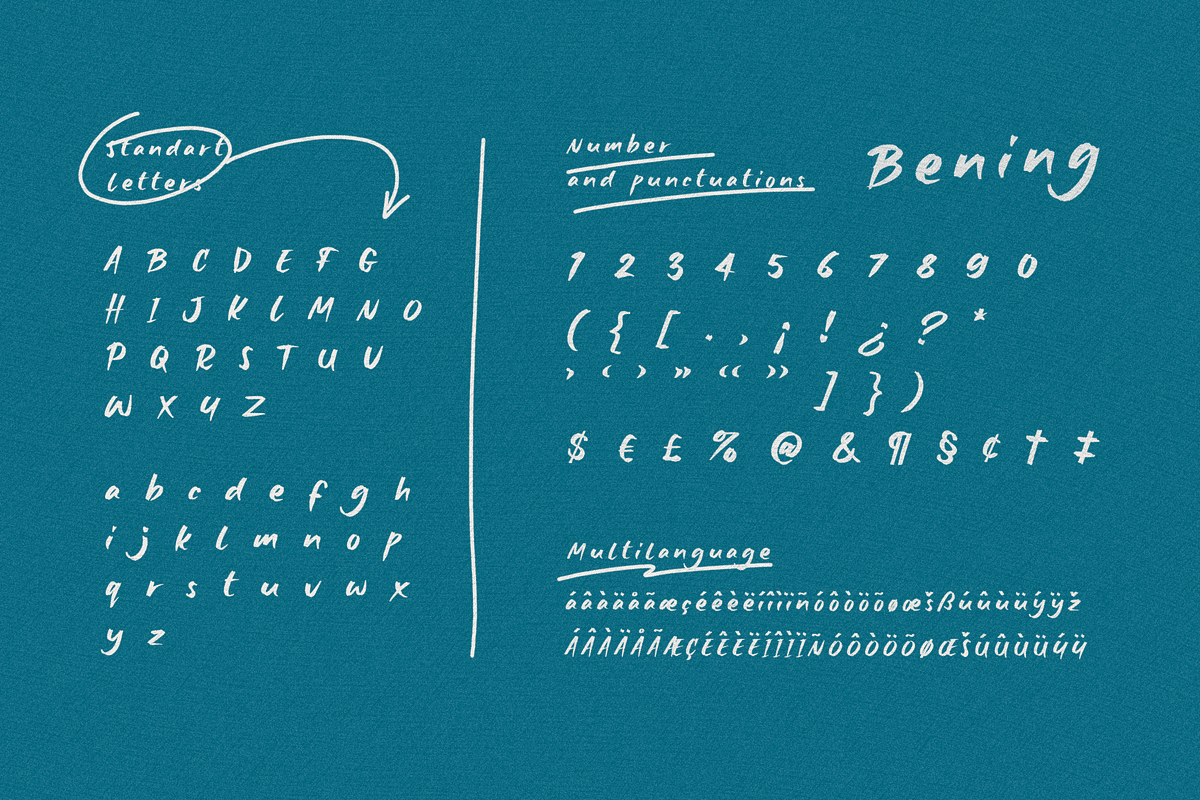 Standart
letters
A B C D E F G
H I J K L M N O
P Q R S T U V
W X Y Z
a b c d e f g h
i j k l m n o p
q r s t u v w x
y z
Number
and punctuations
Bening
1 2 3 4 5 6 7 8 9 0
( { [ . , ¡ ! ¿ ? *
’ ‘ ’ ” “ ” ] } )
$ € £ % @ & ¶ § ¢ † ‡
Multilanguage
áâàäåãæçéêèëíîìïñóôòöõøœšßúûùüýÿž
ÁÂÀÄÅÃÆÇÉÊÈËÍÎÌÏÑÓÔÒÖÕØŒŠÚÛÙÜÝŸ